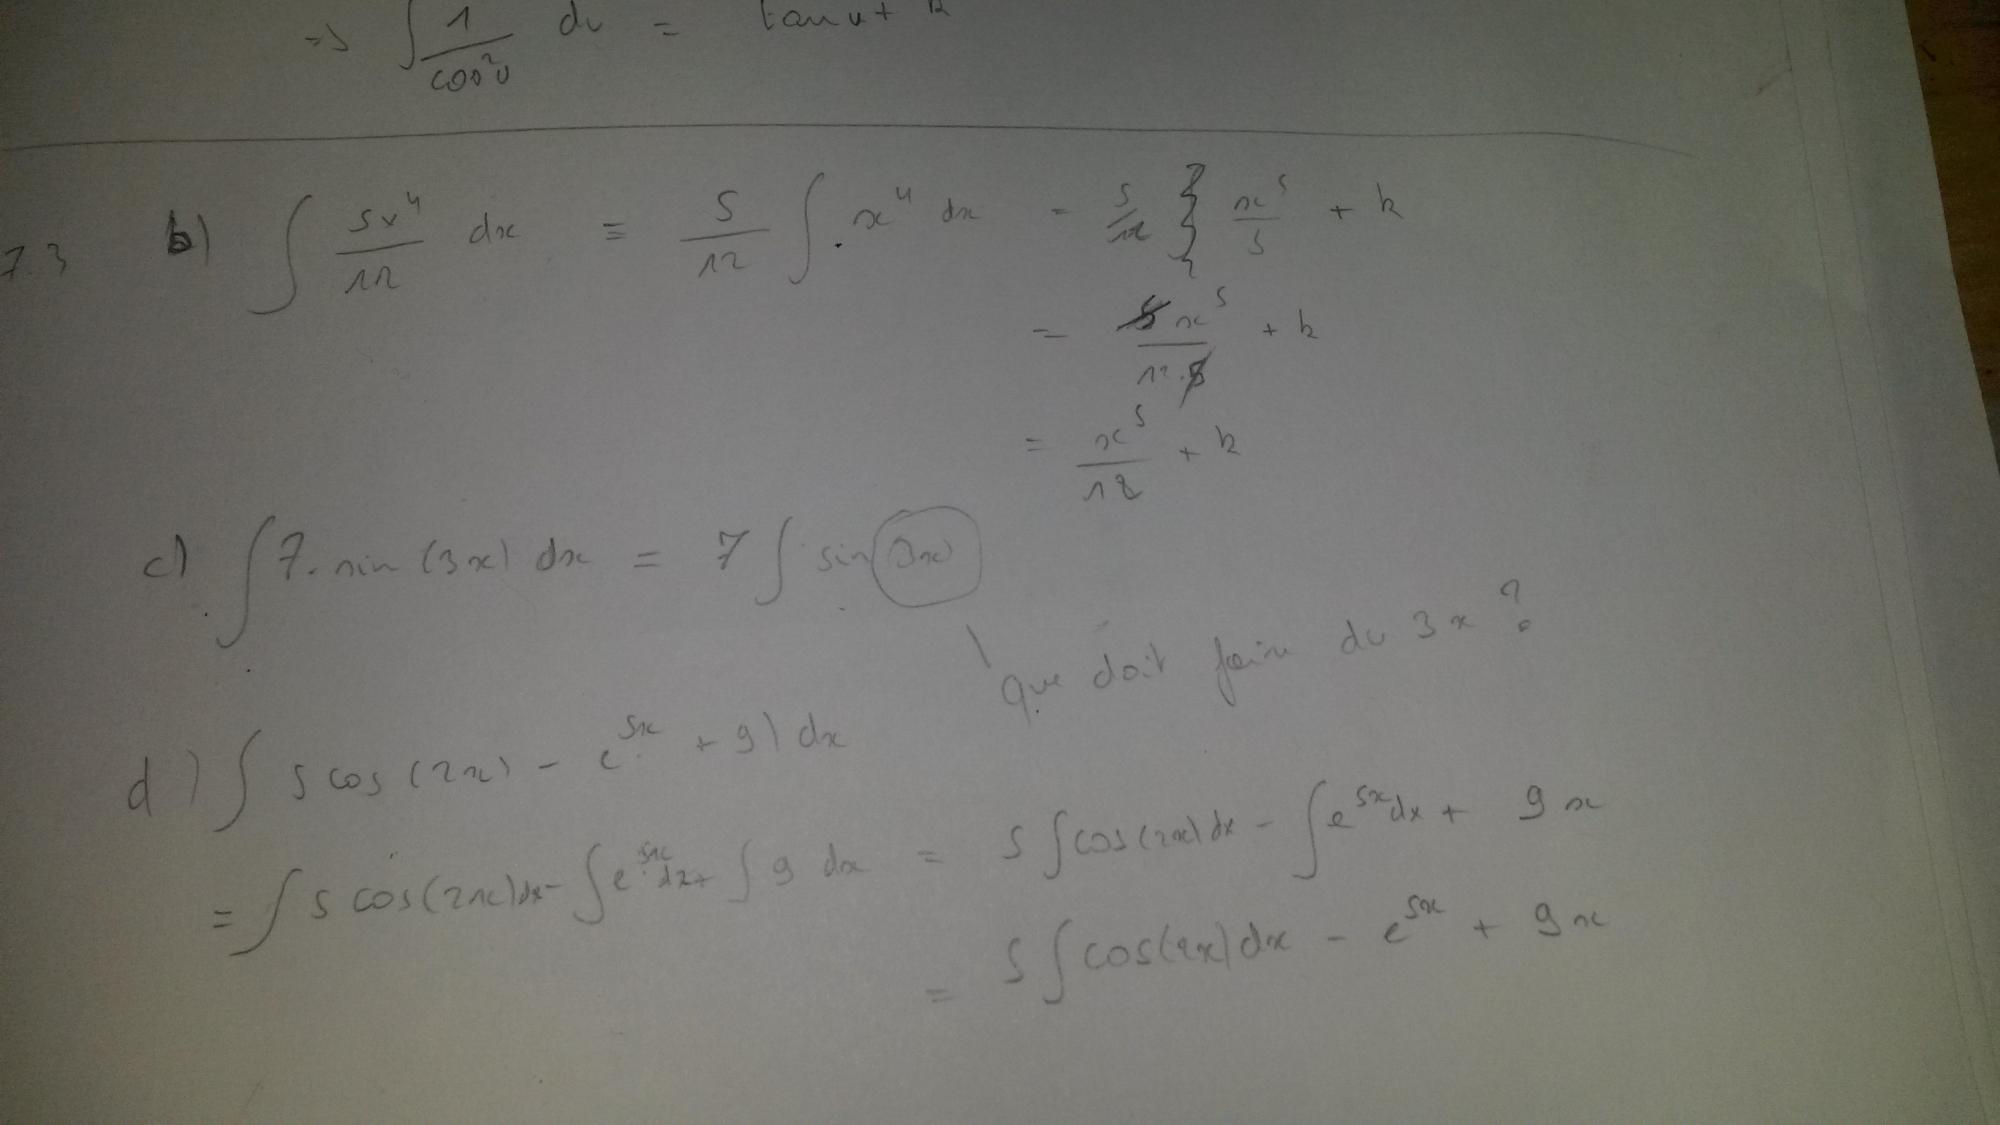 => ∫ 1/cos²u du = tan u + k
7.3 b) ∫ 5x⁴/12 dx = 5/12 ∫ x⁴ dx = 5/12 x⁵/5 + k
= 5x⁵/12.5 + k
= x⁵/12 + k
c) ∫ 7. sin (3x) dx = 7 ∫ sin (3x)
que doit faire du 3x ?
d) ∫ 5 cos (2x) - e⁵ˣ + 9) dx
= ∫ 5 cos(2x) dx - ∫ e⁵ˣ dx + ∫ 9 dx = 5 ∫ cos(2x) dx - ∫ e⁵ˣ dx + 9x
= 5 ∫ cos(2x) dx - e⁵ˣ + 9x